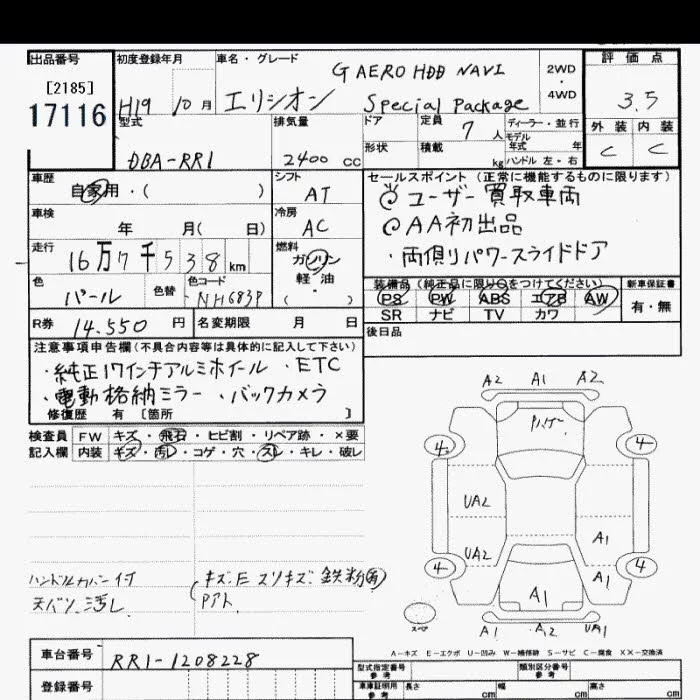 出品番号
[2185]
17116
初度登録年月
H19 10月
車名・グレード
エリシオン
G AERO HDD NAVI
Special Package
2WD
・
4WD
評価点
3.5
外装 内装
C C
型式
DBA-RR1
排気量
2400 cc
ドア
定員 7 人
形状
積載 kg
ディーラー・並行
モデル
年式 年
ハンドル 左・右
車歴
自家用・( )
シフト
AT
車検
年 月( 日)
冷房
AC
走行
16万7千538km
燃料
ガソリン
軽・油
( )
色
パール
色替
色コード
NH683P
R券 14.550 円
名変期限 月 日
セールスポイント(正常に機能するものに限ります)
◎ユーザー買取車両
◎AA初出品
・両側パワースライドドア
装備品(純正品に限り○をつけてください)
PS PW ABS エアB AW
SR ナビ TV カワ
新車保証書
有・無
後日品
注意事項申告欄(不具合内容等は具体的に記入して下さい)
・純正17インチアルミホイール ・ETC
・電動格納ミラー ・バックカメラ
修復歴 有 [箇所 ]
検査員
記入欄
FW キズ・飛石・ヒビ割・リペア跡・×要
内装 キズ・汚れ・コゲ・穴・スレ・キレ・破レ
ハンドルカバー付
天バリ汚レ
A2 A1 A2
4 4
UA2
UA2 A1
4 4 A1
A1
スペア
A1 A2 UA1
A-キズ E-エクボ U-凹み W-補修跡 S-サビ C-腐食 XX-交換済
車台番号 RR1-1208228
登録番号
型式指定番号
類別区分番号
車庫証明用
参考
長さ cm
幅 cm
高さ cm